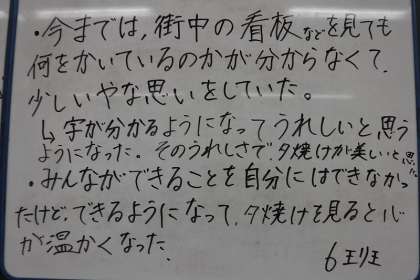 ・今までは，街中の看板などを見ても
何をかいているのかが分からなくて，
少しいやな思いをしていた。
↳字が分かるようになってうれしいと思う
ようになった。そのうれしさで，夕焼けが美しいと思った
・みんなができることを自分にはできなかっ
たけど，できるようになって，夕焼けを見ると心
が温かくなった。
6班